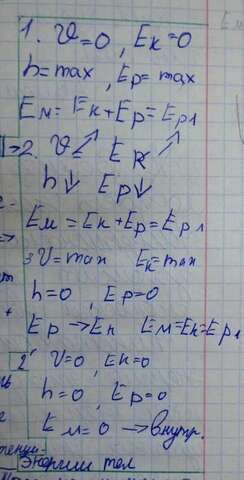 1. V=0, Ek=0
h=max, Ep=max
Eм=Ek+Ep=Ep1
2. V↗ Ek↗
h↓ Ep↓
Eм=Ek+Ep=Ep1
3 V=max Ek=max
h=0, Ep=0
Ep→Ek Eм=Ek=Ep1
2' V=0, Ek=0
h=0, Ep=0
Eм=0 → внутр.
энергии тел